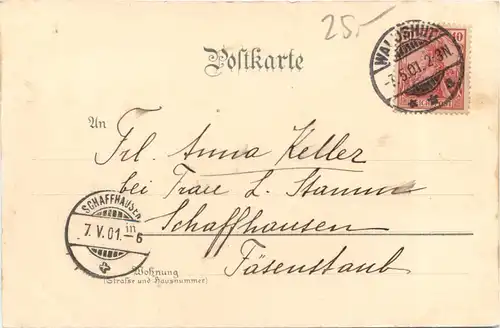 25.-
Postkarte
WALDSHUT
-7.5.01. 2-3N
10
An
Frl. Anna Keller
bei Frau L. Stamm
Schaffhausen
SCHAFFHAUSEN
7. V. 01.-6
Fäsenstaub
Wohnung
(Strasse und Hausnummer)